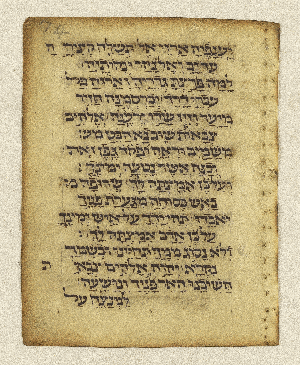 וענפיה ארזי אל תשלח קציריה
עד ים ואל נהר יונקותיה
למה פרצת גדריה וארוה כל
עברי דרך יכרסמנה חזיר
מיער וזיז שדי ירענה אלהים
צבאות שוב נא הבט
משמים וראה ופקד גפן זאת
וכנה אשר נטעה ימינך
ועל בן אמצתה לך שרפה
באש כסוחה מגערת פניך
יאבדו תהי ידך על איש ימינך
על בן אדם אמצת לך
ולא נסוג ממך תחיינו ובשמך
נקרא יהוה אלהים
השיבנו האר פניך ונושעה
למנצח על